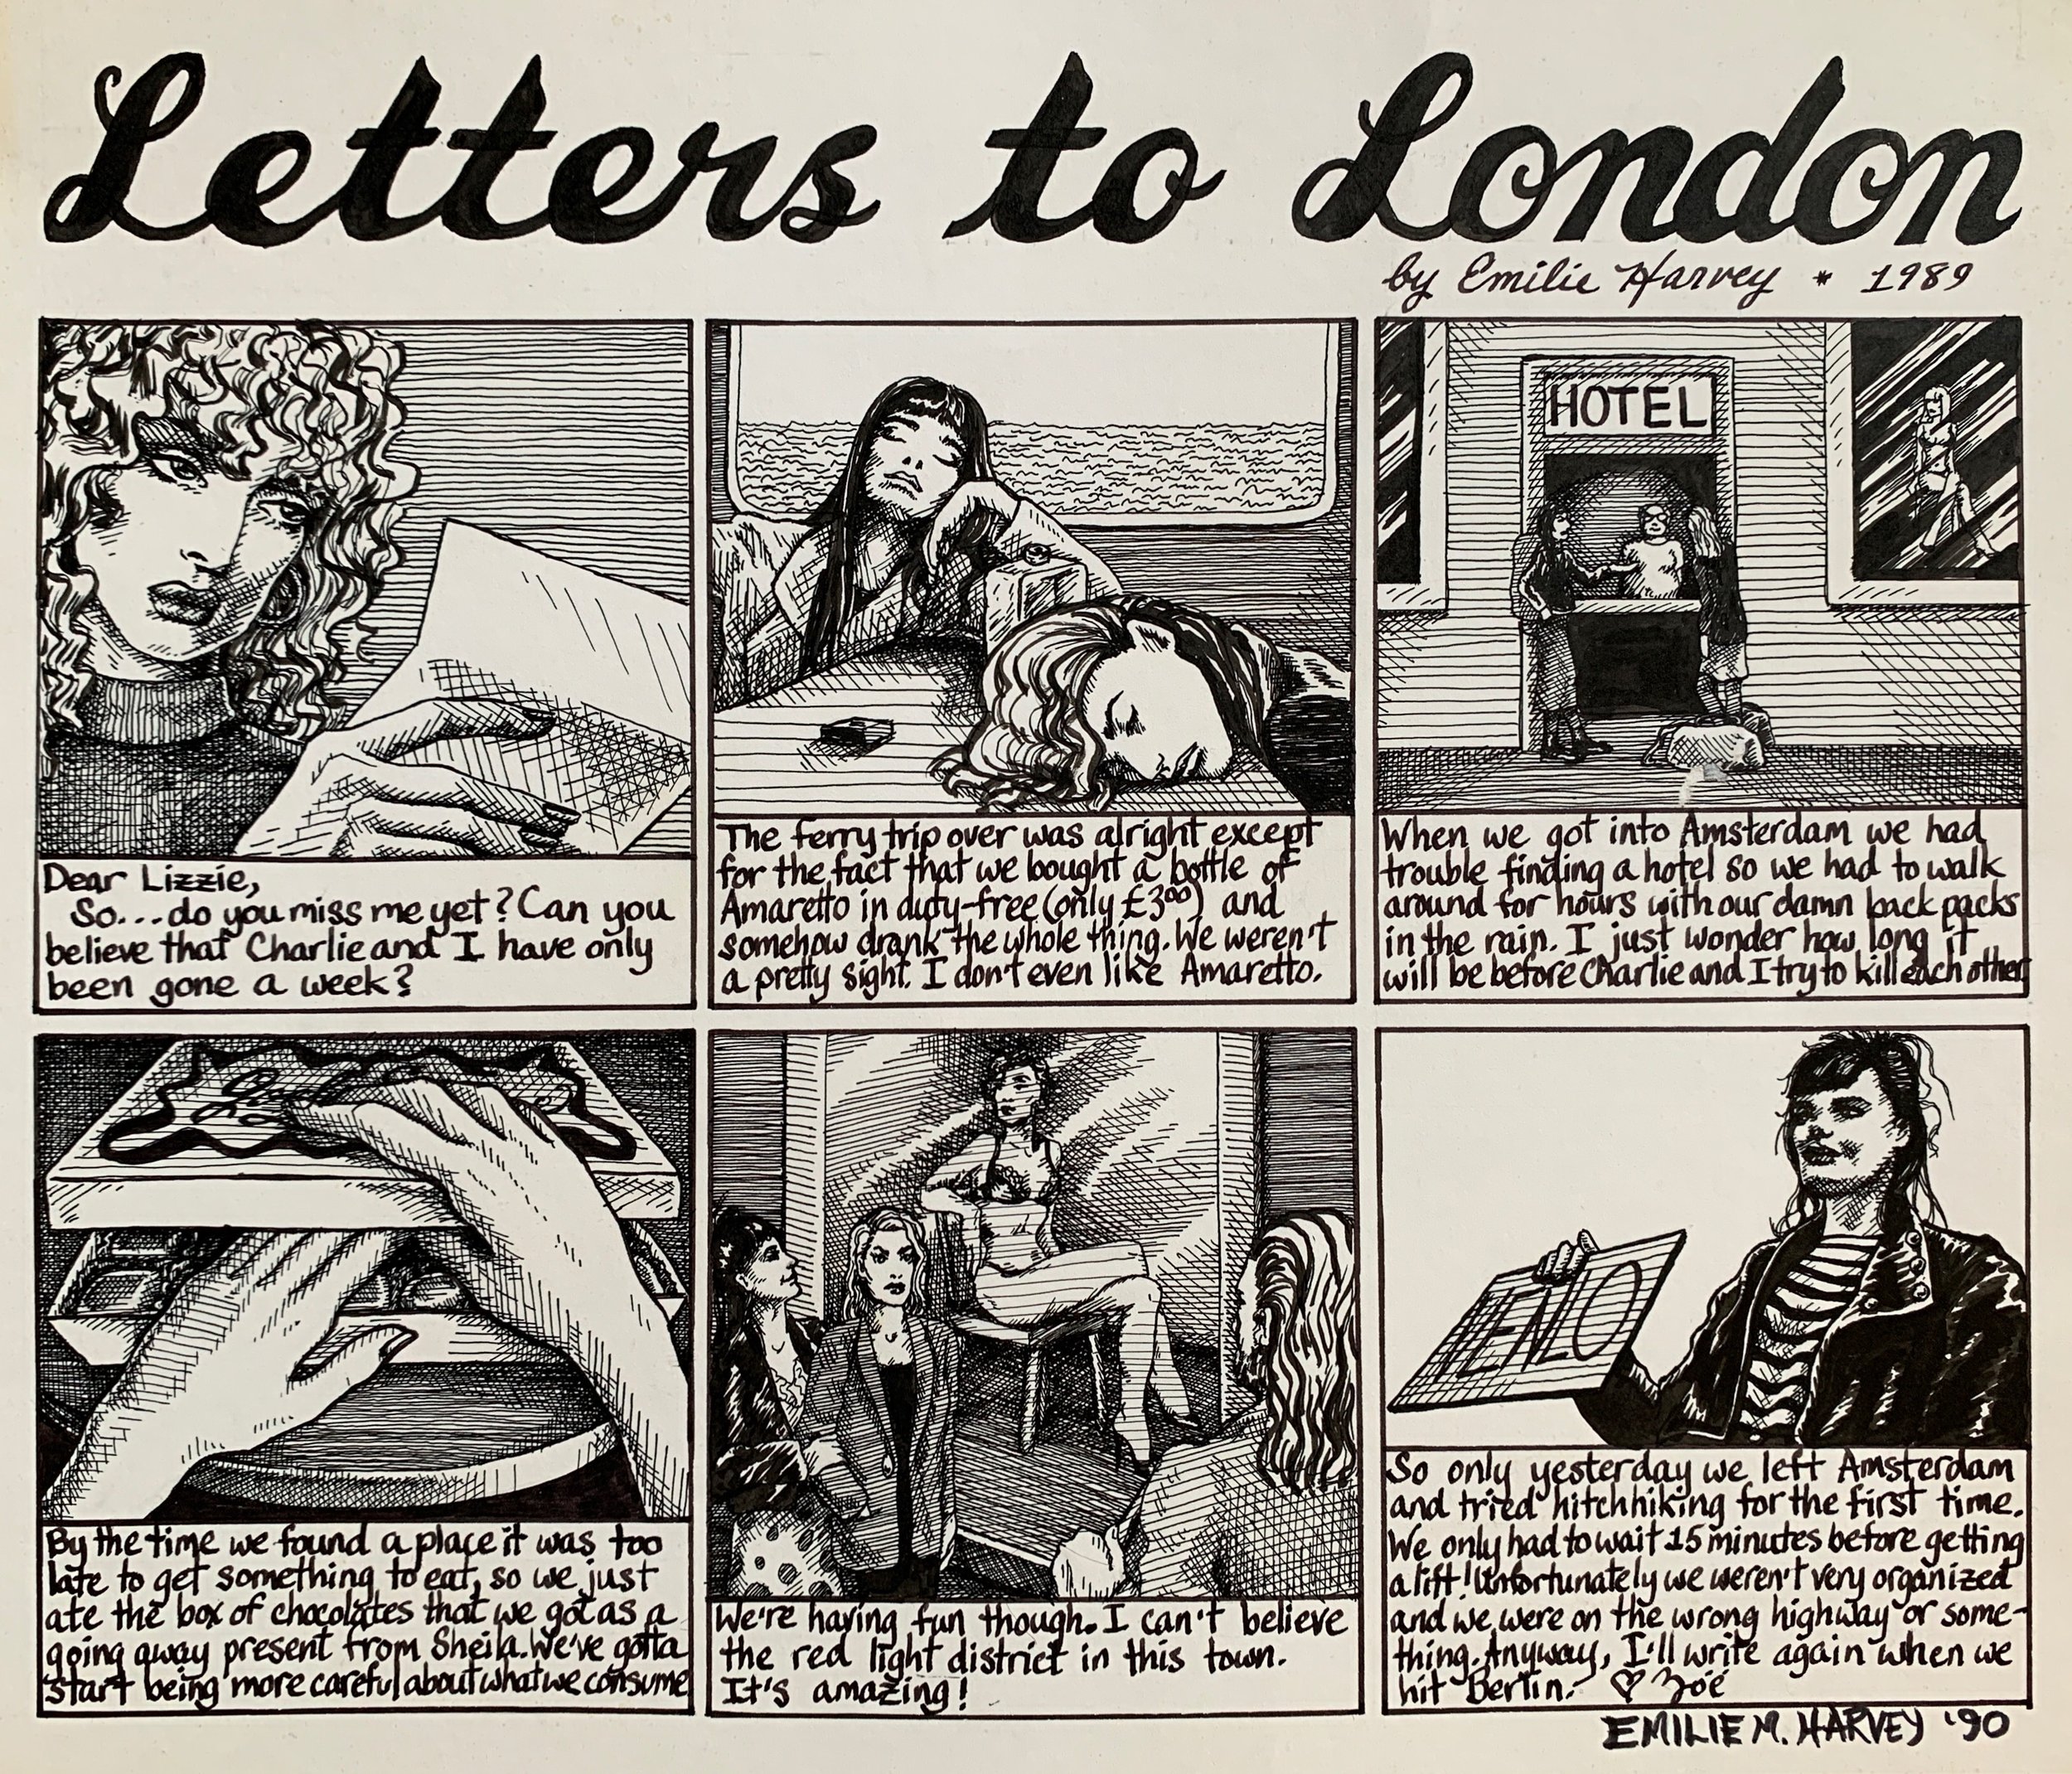 Letters to London
by Emilie Harvey * 1989
HOTEL
Dear Lizzie,
So...do you miss me yet? Can you
believe that Charlie and I have only
been gone a week?
The ferry trip over was alright except
for the fact that we bought a bottle of
Amaretto in duty-free (only £3⁰⁰) and
somehow drank the whole thing. We weren't
a pretty sight. I don't even like Amaretto.
When we got into Amsterdam we had
trouble finding a hotel so we had to walk
around for hours with our damn back packs
in the rain. I just wonder how long it
will be before Charlie and I try to kill each other.
By the time we found a place it was too
late to get something to eat, so we just
ate the box of chocolates that we got as a
going away present from Sheila. We've gotta
start being more careful about what we consume
We're having fun though. I can't believe
the red light district in this town.
It's amazing!
VENLO
So only yesterday we left Amsterdam
and tried hitchhiking for the first time.
We only had to wait 15 minutes before getting
a lift! Unfortunately we weren't very organized
and we were on the wrong highway or some-
thing. Anyway, I'll write again when we
hit Berlin. ♡ Zöe
EMILIE M. HARVEY '90